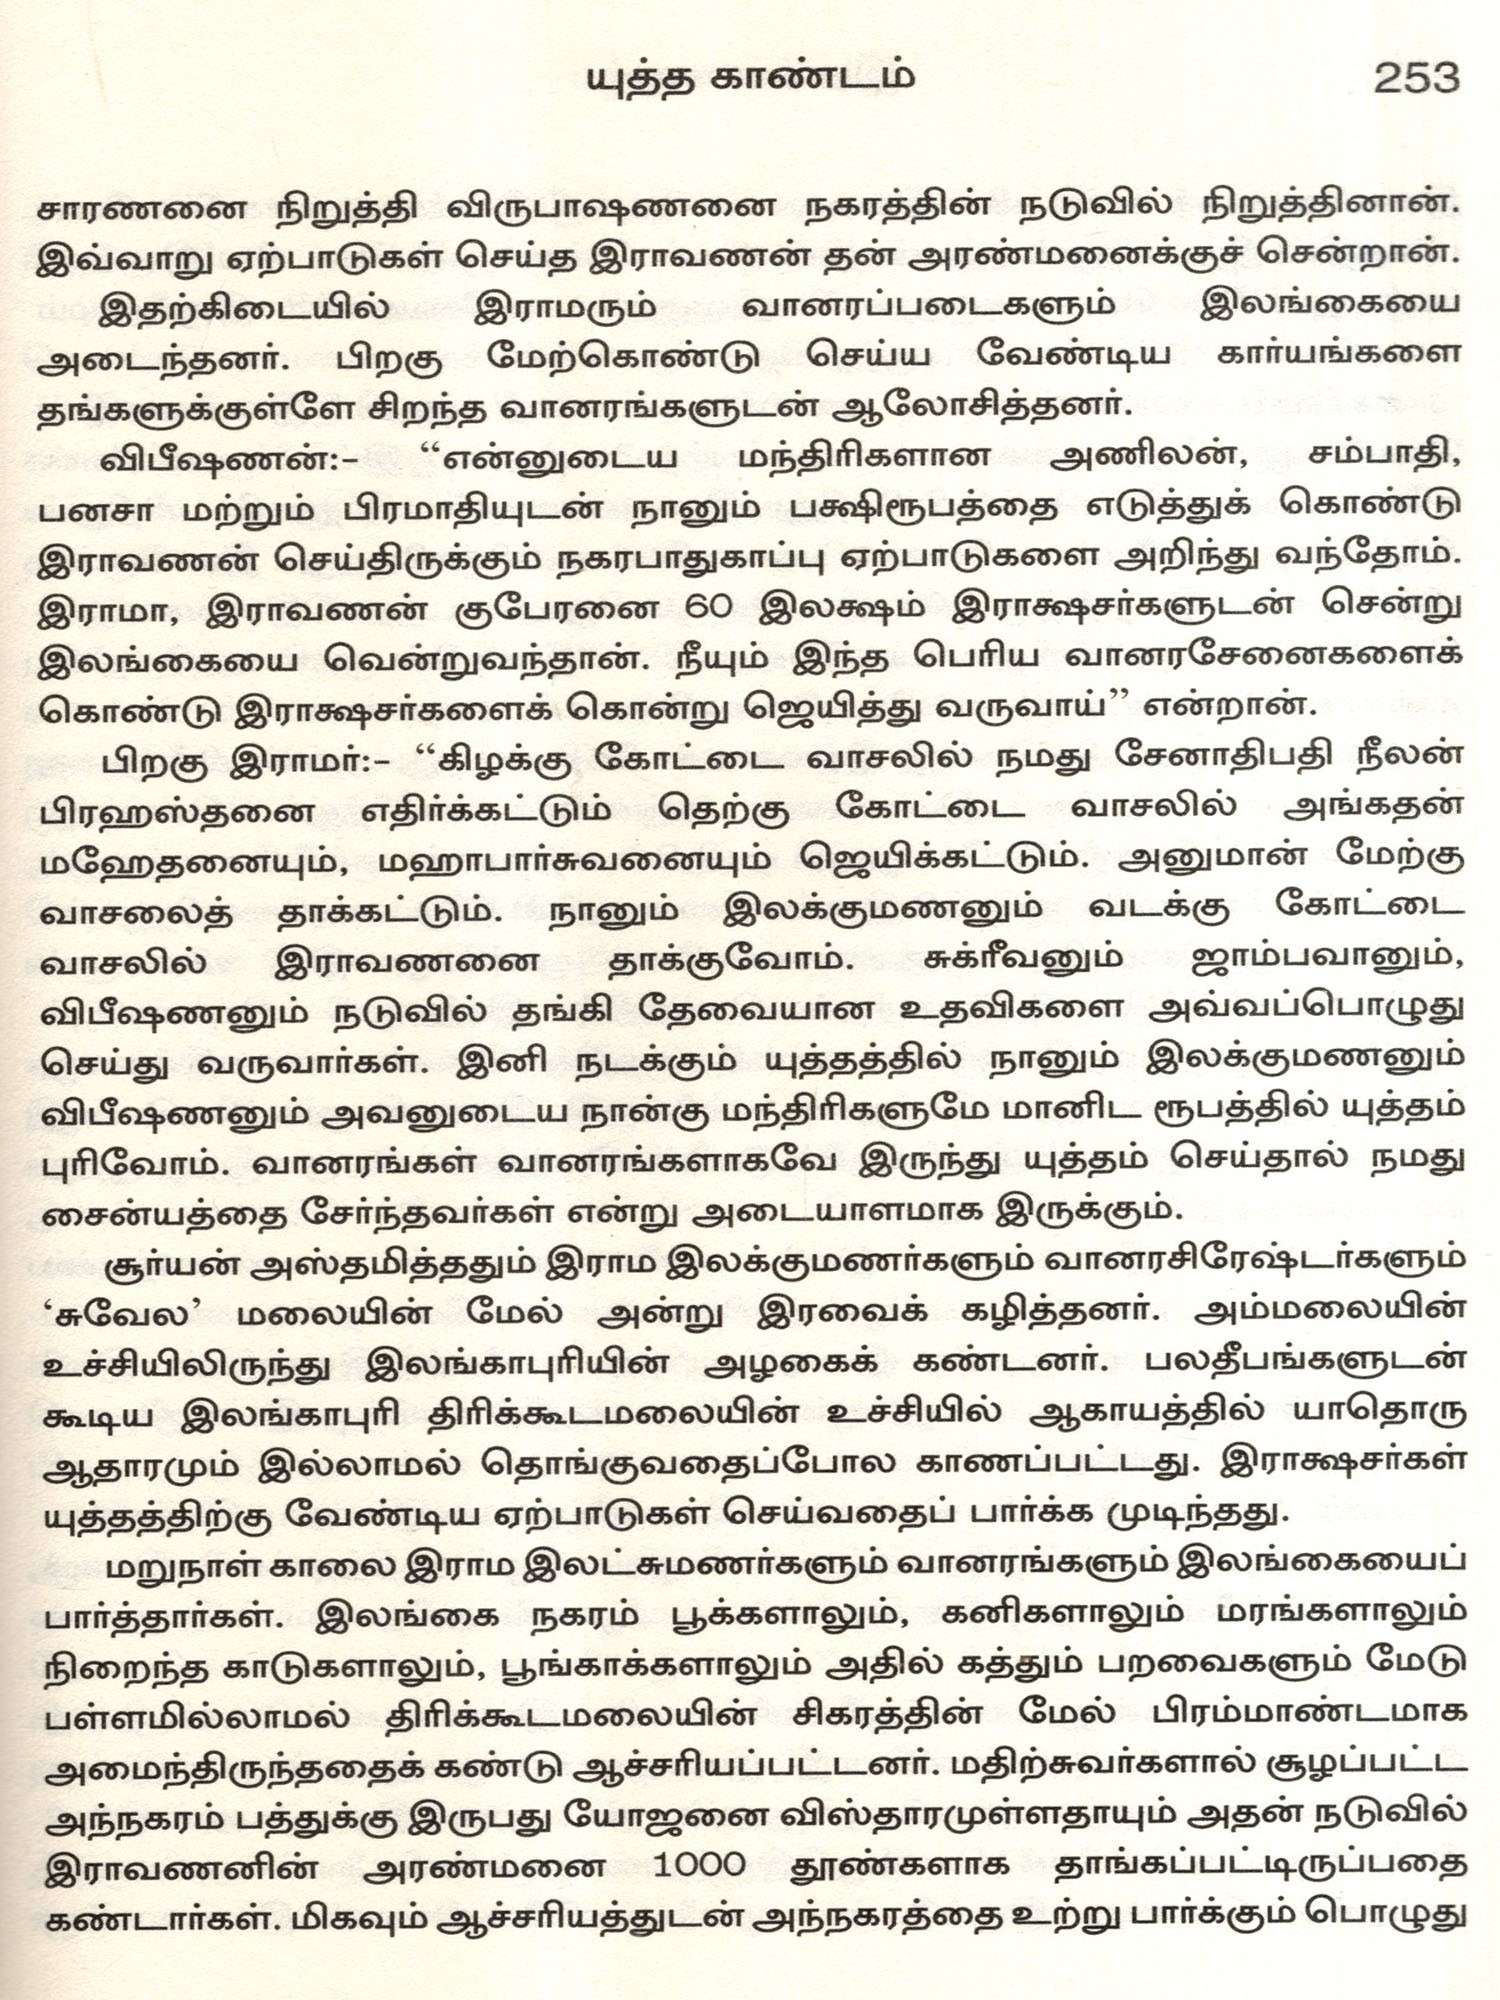 யுத்த காண்டம்
253
சாரணனை நிறுத்தி விருபாஷணனை நகரத்தின் நடுவில் நிறுத்தினான்.
இவ்வாறு ஏற்பாடுகள் செய்த இராவணன் தன் அரண்மனைக்குச் சென்றான்.
இதற்கிடையில் இராமரும் வானரப்படைகளும் இலங்கையை
அடைந்தனர். பிறகு மேற்கொண்டு செய்ய வேண்டிய கார்யங்களை
தங்களுக்குள்ளே சிறந்த வானரங்களுடன் ஆலோசித்தனர்.
விபீஷணன்:– “என்னுடைய மந்திரிகளான அணிலன், சம்பாதி,
பனசா மற்றும் பிரமாதியுடன் நானும் பக்ஷிரூபத்தை எடுத்துக் கொண்டு
இராவணன் செய்திருக்கும் நகரபாதுகாப்பு ஏற்பாடுகளை அறிந்து வந்தோம்.
இராமா, இராவணன் குபேரனை 60 இலக்ஷம் இராக்ஷசர்களுடன் சென்று
இலங்கையை வென்றுவந்தான். நீயும் இந்த பெரிய வானரசேனைகளைக்
கொண்டு இராக்ஷசர்களைக் கொன்று ஜெயித்து வருவாய்” என்றான்.
பிறகு இராமர்:– “கிழக்கு கோட்டை வாசலில் நமது சேனாதிபதி நீலன்
பிரஹஸ்தனை எதிர்க்கட்டும் தெற்கு கோட்டை வாசலில் அங்கதன்
மஹேதனையும், மஹாபார்சுவனையும் ஜெயிக்கட்டும். அனுமான் மேற்கு
வாசலைத் தாக்கட்டும். நானும் இலக்குமணனும் வடக்கு கோட்டை
வாசலில் இராவணனை தாக்குவோம். சுக்ரீவனும் ஜாம்பவானும்,
விபீஷணனும் நடுவில் தங்கி தேவையான உதவிகளை அவ்வப்பொழுது
செய்து வருவார்கள். இனி நடக்கும் யுத்தத்தில் நானும் இலக்குமணனும்
விபீஷணனும் அவனுடைய நான்கு மந்திரிகளுமே மானிட ரூபத்தில் யுத்தம்
புரிவோம். வானரங்கள் வானரங்களாகவே இருந்து யுத்தம் செய்தால் நமது
சைன்யத்தை சேர்ந்தவர்கள் என்று அடையாளமாக இருக்கும்.
சூர்யன் அஸ்தமித்ததும் இராம இலக்குமணர்களும் வானரசிரேஷ்டர்களும்
‘சுவேல’ மலையின் மேல் அன்று இரவைக் கழித்தனர். அம்மலையின்
உச்சியிலிருந்து இலங்காபுரியின் அழகைக் கண்டனர். பலதீபங்களுடன்
கூடிய இலங்காபுரி திரிக்கூடமலையின் உச்சியில் ஆகாயத்தில் யாதொரு
ஆதாரமும் இல்லாமல் தொங்குவதைப்போல காணப்பட்டது. இராக்ஷசர்கள்
யுத்தத்திற்கு வேண்டிய ஏற்பாடுகள் செய்வதைப் பார்க்க முடிந்தது.
மறுநாள் காலை இராம இலட்சுமணர்களும் வானரங்களும் இலங்கையைப்
பார்த்தார்கள். இலங்கை நகரம் பூக்களாலும், கனிகளாலும் மரங்களாலும்
நிறைந்த காடுகளாலும், பூங்காக்களாலும் அதில் கத்தும் பறவைகளும் மேடு
பள்ளமில்லாமல் திரிக்கூடமலையின் சிகரத்தின் மேல் பிரம்மாண்டமாக
அமைந்திருந்ததைக் கண்டு ஆச்சரியப்பட்டனர். மதிற்சுவர்களால் சூழப்பட்ட
அந்நகரம் பத்துக்கு இருபது யோஜனை விஸ்தாரமுள்ளதாயும் அதன் நடுவில்
இராவணனின் அரண்மனை 1000 தூண்களாக தாங்கப்பட்டிருப்பதை
கண்டார்கள். மிகவும் ஆச்சரியத்துடன் அந்நகரத்தை உற்று பார்க்கும் பொழுது